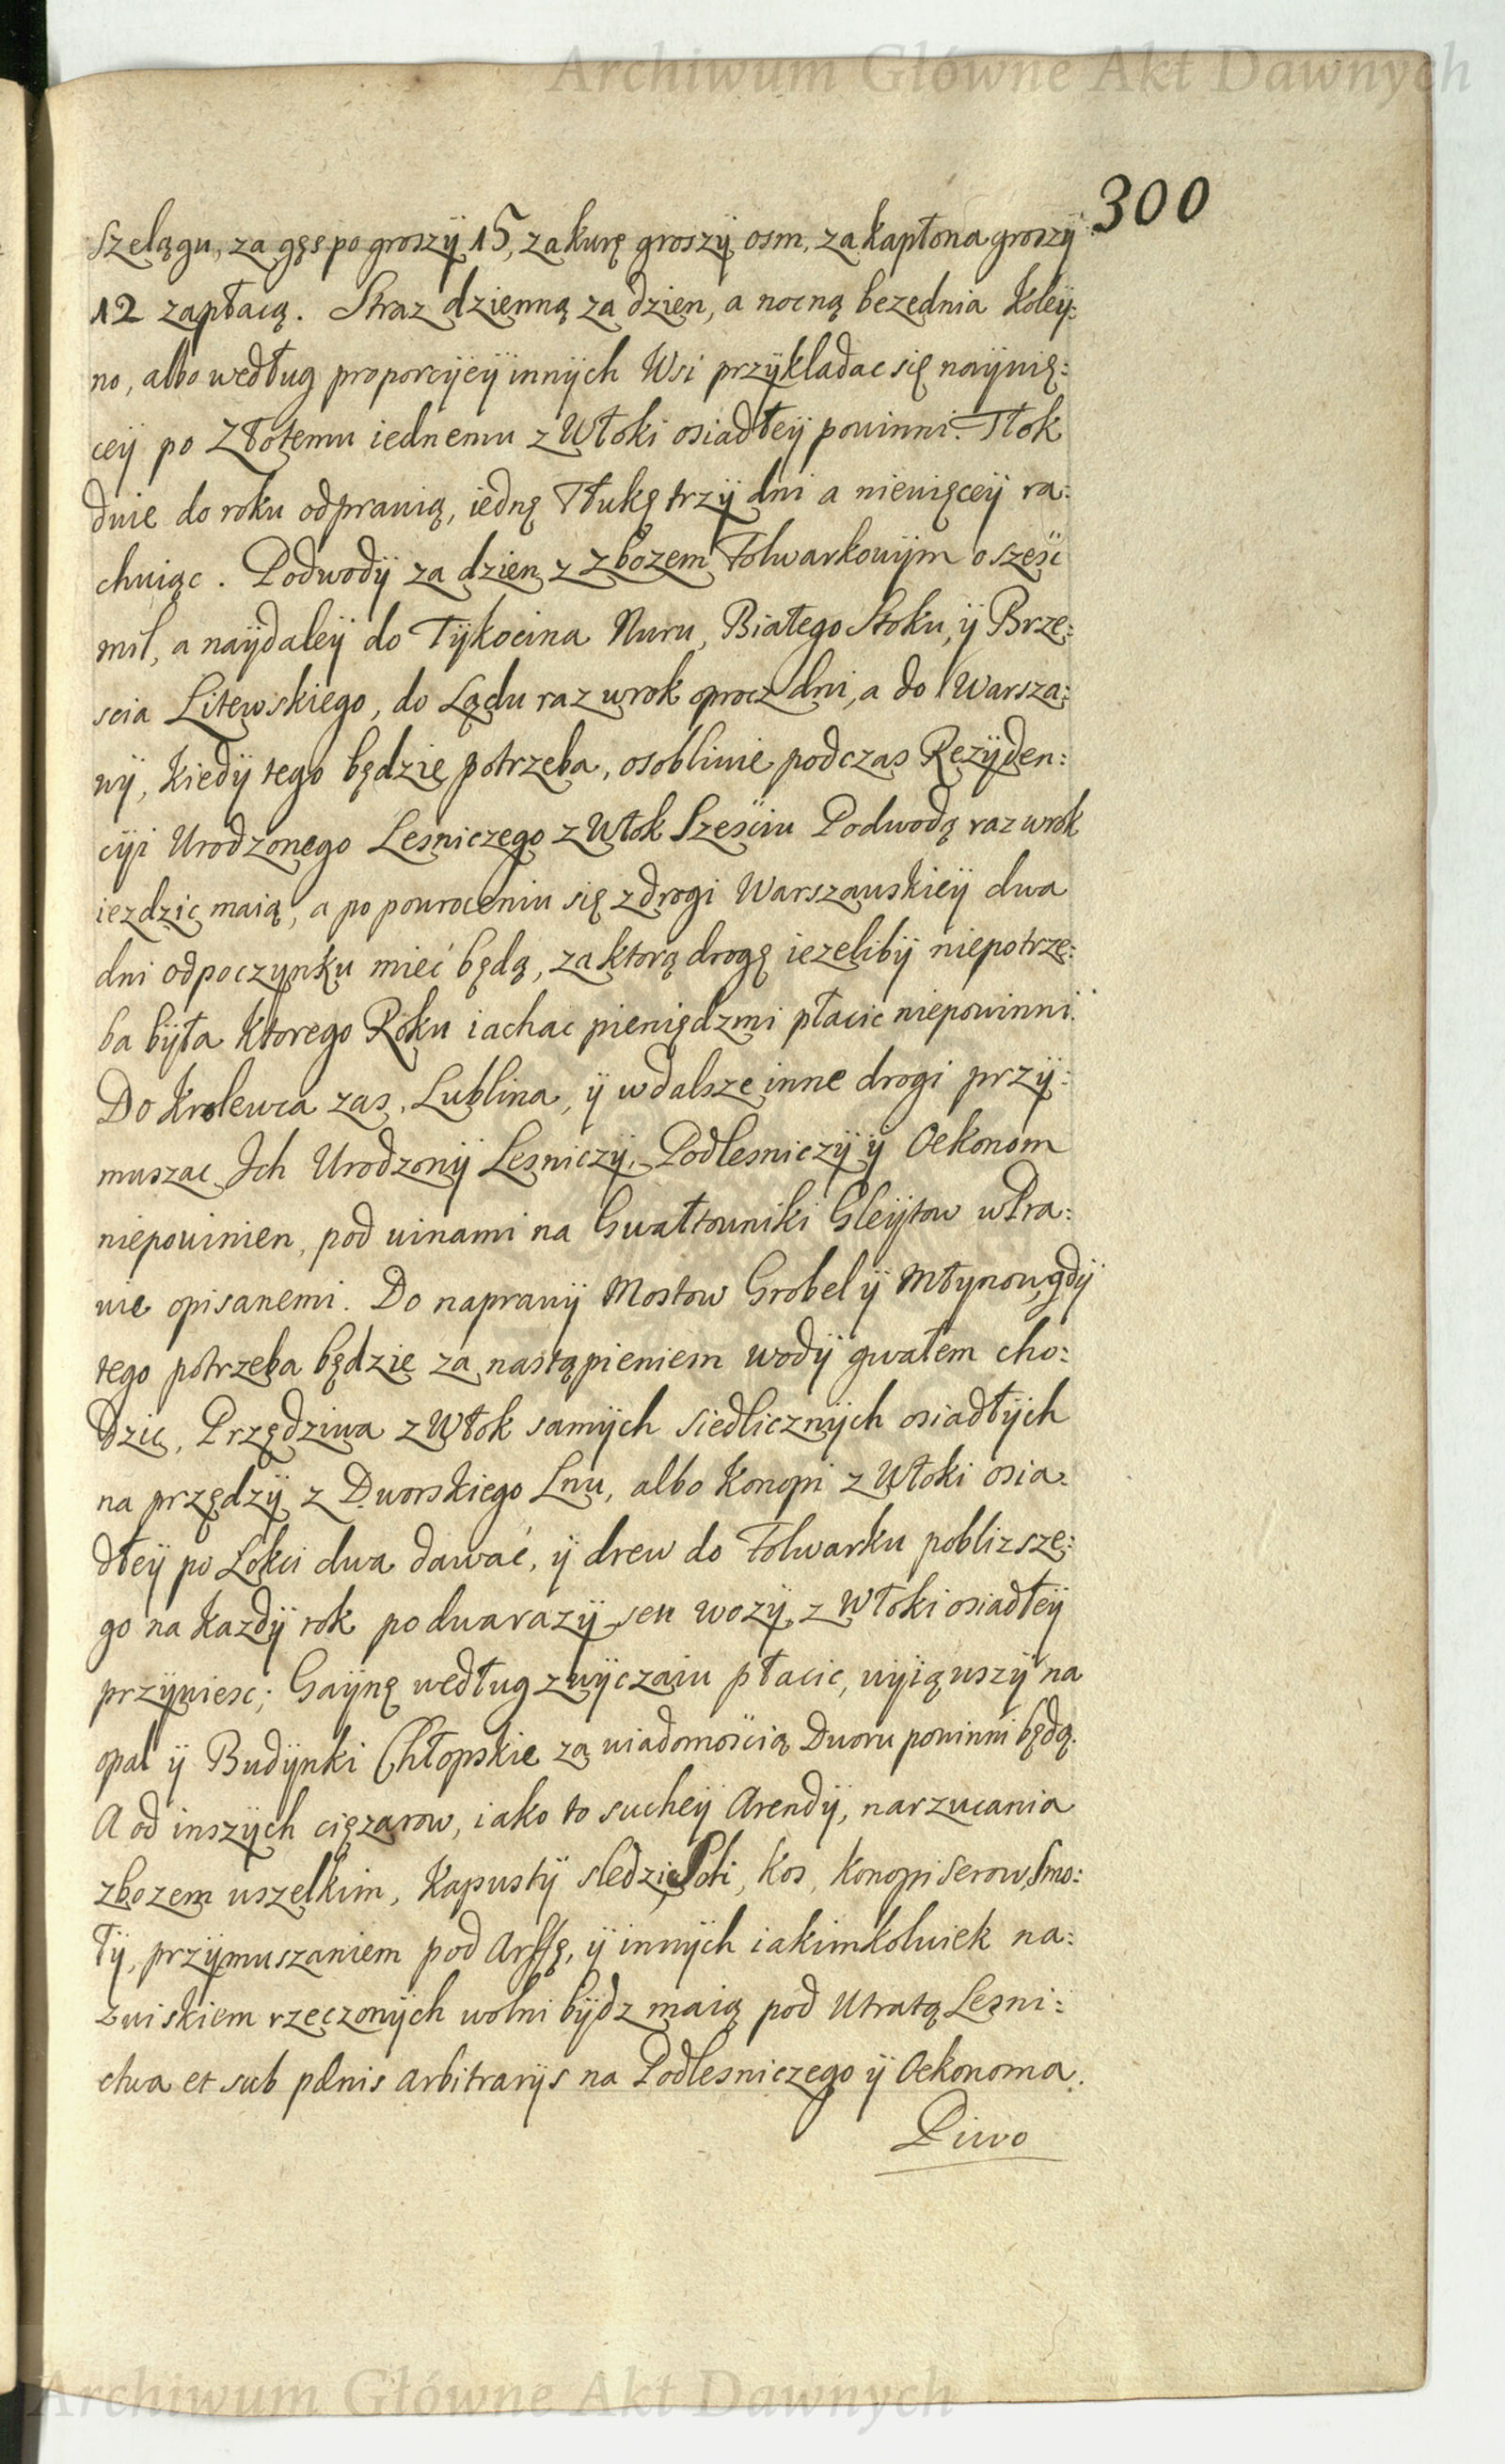 Archiwum Główne Akt Dawnych
300
szelągu, za gęś po groszÿ 15, za kurę groszÿ osm, za kapłona groszÿ
12 zapłacą. Straz dzienną za dzien, a nocną bezednia koleÿ:
no, albo według proporcÿeÿ innÿch Wsi przÿkladac się naÿwię:
ceÿ po Złotemu iednemu z Włoki osiadłeÿ powinni. Tłok
dwie do roku odprawią, iednę Tłukę trzÿ dni a niewięceÿ ra:
chuiąc. Podwodÿ za dzien z zbozem Folwarkowÿm o sześć
mil, a naÿdaleÿ do Tÿkocina Nuru, Białego Stoku, ÿ Brze:
scia Litewskiego, do Lądu raz w rok oprocz dni, a do Warsza:
wÿ, kiedÿ tego będzie potrzeba, osobliwie podczas Rezÿden:
cÿi Urodzonego Lesniczego z Włok Sześciu Podwodą raz w rok
iezdzic maią, a po powroceniu się z drogi Warszawskieÿ dwa
dni odpoczynku mieć będą, za ktorą drogę iezelibÿ niepotrze:
ba bÿła ktorego Roku iachac pieniędzmi płacic niepowinni.
Do Krolewca zas, Lublina, ÿ w dalsze inne drogi przÿ:
muszac Ich Urodzonÿ Lesniczÿ, Podlesniczÿ ÿ Oekonom
niepowinien, pod winami na Gwałtowniki Gleÿtow w Pra:
wie opisanemi. Do naprawÿ Mostow Grobel ÿ Młynow, gdÿ
tego potrzeba będzie za nastąpieniem wodÿ gwałem cho:
dzic, Przędziwa z Włok samÿch siedlicznÿch osiadłÿch
na przędzÿ z Dworskiego Lnu, albo Konopi z Włoki osia:
dłeÿ po Łokci dwa dawać, ÿ drew do Folwarku pobliższe:
go na kazdÿ rok po dwa razÿ seu wozÿ z Włoki osiadłeÿ
przÿwiesc; Gaÿnę według zwÿczaiu płacic, wÿiąwszÿ na
opał ÿ Budÿnki Chłopskie za wiadomością Dworu powinni będą.
A od inszÿch cięzarow, iako to sucheÿ Arendÿ, narzucania
zbozem wszelkim, Kapustÿ sledzi, Soli, Kos, Konopi Serow, Smo:
łÿ, przÿmuszaniem pod Arffę, ÿ innÿch iakimkolwiek na:
zwiskiem rzeczonÿch wolni bÿdz maią pod Utratą Lesni:
ctwa et sub pænis arbitrarÿs na Podlesniczego ÿ Oekonoma.
Piwo
Archiwum Główne Akt Dawnych